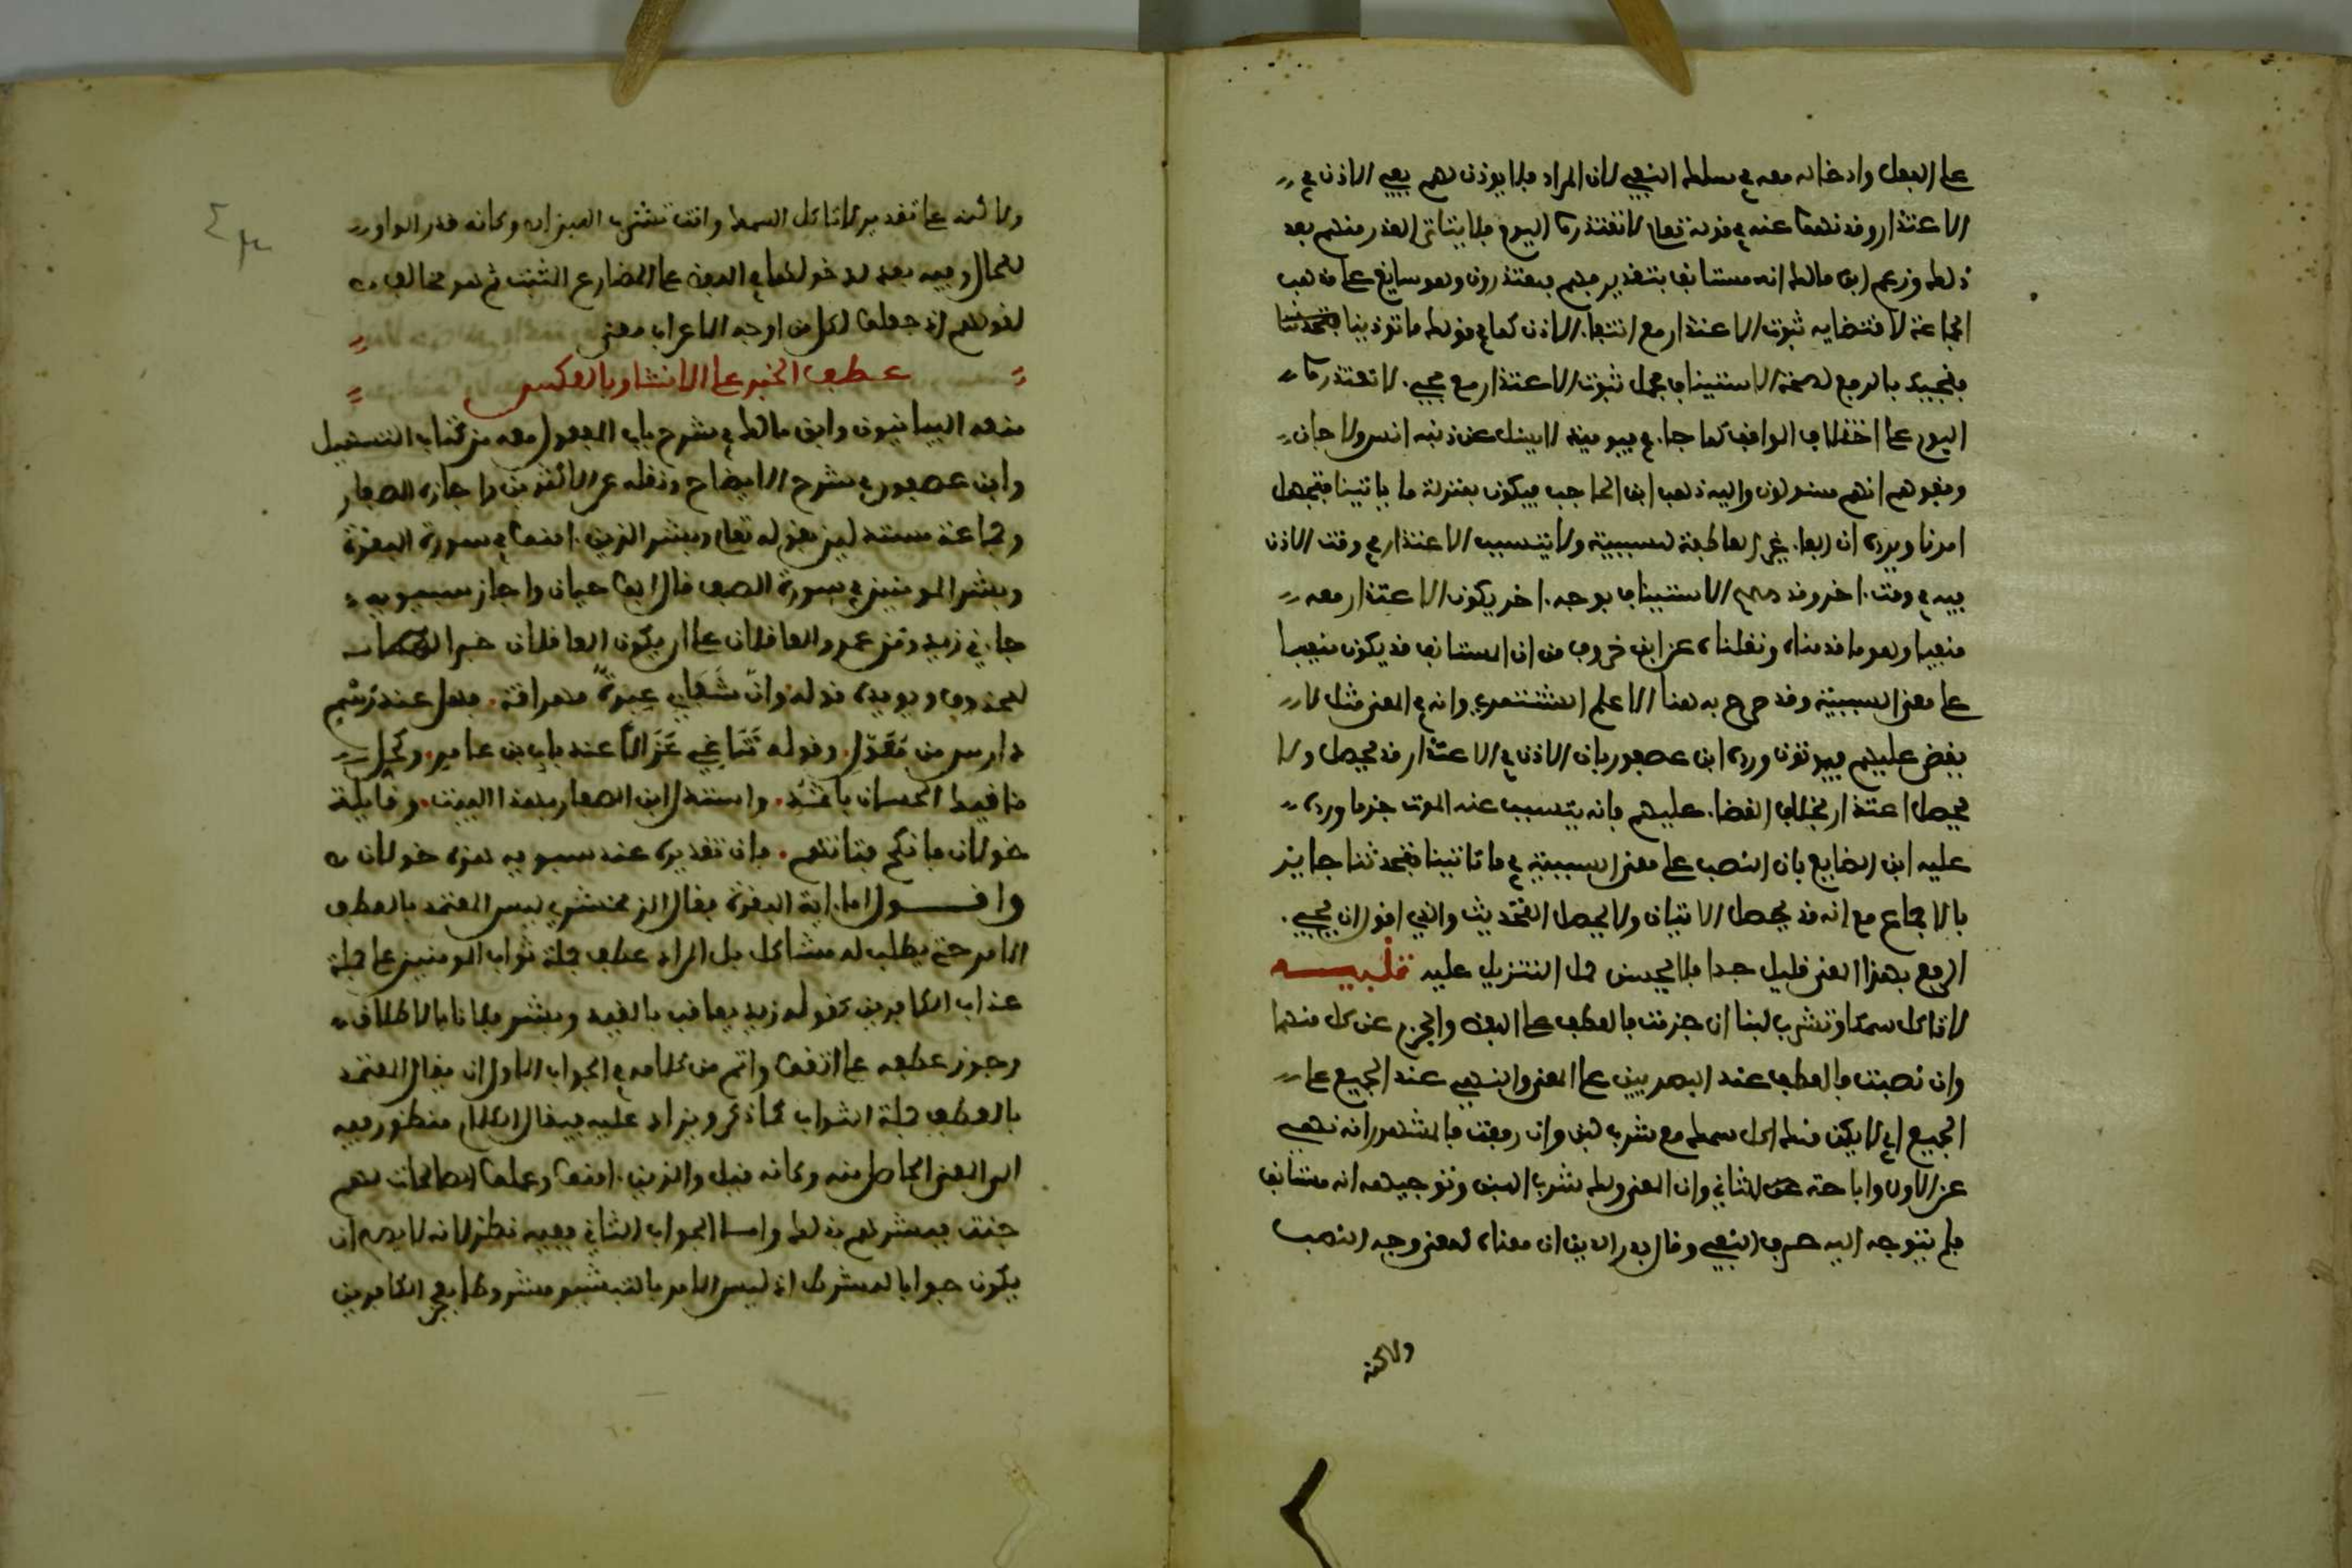 على الفعل وادخاله معه في سلك النفي لان المراد فلا يوذن لهم نفي الاذن في
الاعتذار وقد نهوا عنه في قوله تعلى لا تعتذروا اليوم فلا يتاتى العذر منهم بعد
ذلك وزعم ابن مالك انه مستانف بتقدير فهم يعتذرون وهو سايغ على مذهب
الجماعة لاقتضايه ثبوت الاعتذار مع انتفاء الاذن كما في قولك ما توذينا فتحدثنا
فنحبك بالرفع لصحة الاستيناف يحمل ثبوت الاعتذار مع مجيء لا تعتذروا
اليوم على اختلاف المواقف كما جاء فيوميذ لا يسل عن ذنبه انس ولا جان
وقفوهم انهم مسئولون واليه ذهب ابن الحاجب فيكون بمنزلة ما ياتينا فيجهل
امرنا ويرده ان الفاء غير العاطفة للسببية ولا يتسبب الاعتذار في وقت الاذن
فيه في وقت اخر وقد صح الاستيناف بوجه اخر يكون الاعتذار معه
منفيا وهو ما قدمناه ونقلناه عن ابن خروف من ان المستانف قد يكون منفيا
على معنى السببية وقد صرح به هنا الاعلم الشنتمري وانه في المعنى مثل لا
يقضى عليهم فيموتون ورده ابن عصفور بان الاذن في الاعتذار قد يحصل ولا
يحصل اعتذار بخلاف القضاء عليهم فانه يتسبب عنه الموت جزما ورده
عليه ابن الضايع بان النصب على معنى السببية في ما تاتينا فتحدثنا جايز
بالاجماع مع انه قد يحصل الاتيان ولا يحصل التحديث والذي اقول ان مجيء
الرفع بهذا المعنى قليل جدا فلا يحسن حمل التنزيل عليه تنبيه
لا تاكل سمكا وتشرب لبنا ان جزمت فالعطف على اللفظ والجزم عن كل منهما
وان نصبت فالعطف عند البصريين على المعنى والنهي عند الجميع على
الجميع اي لا يكن منك اكل سمك مع شرب لبن وان رفعت فالمشهور انه نهي
عن الاول واباحة للثاني وان المعنى ولك شرب اللبن وتوجيهه انه مستانف
فلم يتوجه اليه حرف النهي وقال بدر الدين ان معناه كمعنى وجه النصب
ولاكنه
ولاكنه على تقدير لا تاكل السمك وانت تشرب اللبن انه وكانه قدر الواو
للحال وفيه بعد لدخولها في اللفظ على المضارع المثبت ثم هو مخالف
لقولهم اذ جعلوا لكل من اوجه الاعراب معنى
عطف الخبر على الانشاء وبالعكس
منعه البيانيون وابن مالك في شرح باب المفعول معه من كتاب التسهيل
وابن عصفور في شرح الايضاح ونقله عن الاكثرين واجازه الصفار
وجماعة مستدلين بقوله تعلى وبشر الذين امنوا في سورة البقرة
وبشر المومنين في سورة الصف قال ابو حيان واجاز سيبويه
جاءني زيد ومن عمرو العاقلان على ان يكون العاقلان خبرا
لمحذوف ويويده قوله وان شفاي عبرة مهراقة فهل عند رسم
دارس من معول وقوله تناغي غزالا عند باب ابن عامر وكحل
مئاقيك الحسان باثمد واستدل ابن الصفار بهذا البيت وقايلة
خولان فانكح فتاتهم فان تقديره عند سيبويه هذه خولان
واقول اما اية البقرة فقال الزمخشري ليس المعتمد بالعطف
الامر حتى يطلب له مشاكل بل المراد عطف جملة ثواب المومنين على جملة
عذاب الكافرين كقوله زيد يعاقب بالقيد وبشر فلانا بالاطلاق
وجوز عطفه على اتقوا واتم من كلامه في الجواب الاول ان يقال المعتمد
بالعطف جملة الثواب كما ذكر ويزاد عليه فيقال الكلام منظور فيه
الى المعنى الحاصل منه وكانه قيل والذين امنوا وعملوا الصالحات لهم
جنت فبشرهم بذلك واما الجواب الثاني ففيه نظر لانه لا يصح ان
يكون جوابا لشرط اذ ليس الامر بالتبشير مشروطا بعجز الكافرين